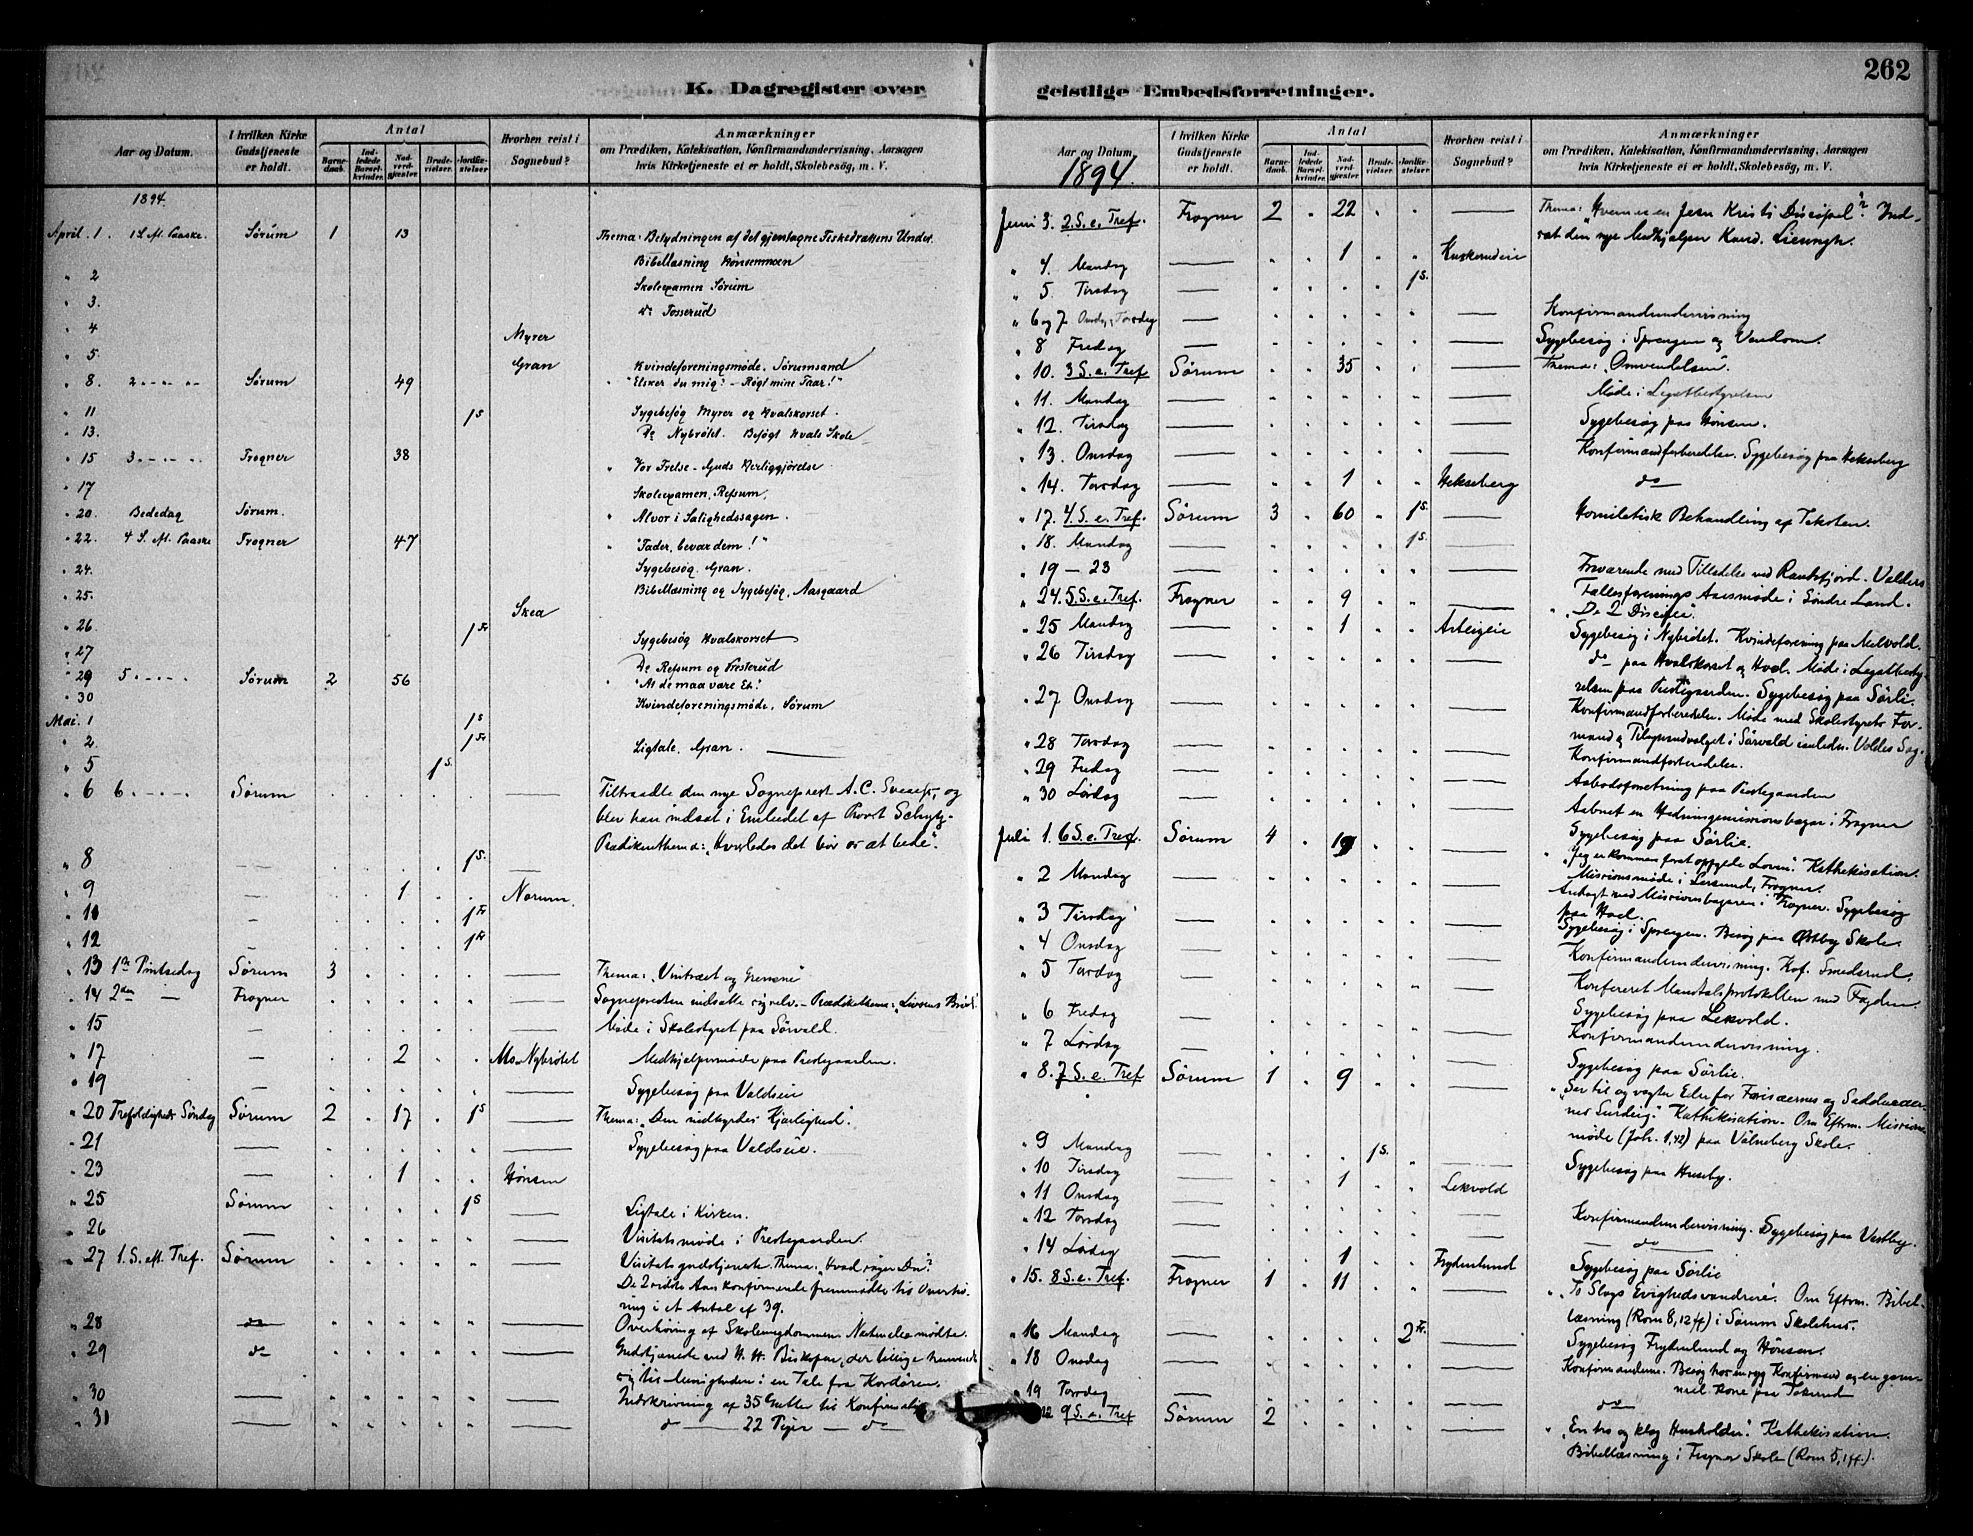 262
K. Dagregister over
geistlige Embedsforretninger.
Aar og Datum.
I hvilken Kirke Gudstjeneste er holdt.
Antal
Barnedaab.
Indledede Barselkvinder.
Nadverdgjæster.
Brudevielser.
Jordfæstelser
Hvorhen reist i Sognebud?
Anmærkninger
om Prædiken, Katekisation, Konfirmandundervisning, Aarsagen
hvis Kirketjeneste ei er holdt, Skolebesøg, m. V.
1894.
April. 1. 1 S. eft. Paaske. Sørum 1 13 Thema: Betydningen af det gjentagne Fiskedrættens Under.
Bibellæsning Hönsenmoen
" 2 Skoleexamen Sørum
" 3. Do Fosserud
" 4 Myrer
" 5. Gran Kvindeforeningsmøde. Sørumsand
" 8. 2 - - - - Sørum 49 "Elsker du mig? - Røgt mine Faar!"
" 11 1 S Sygebesøg Myrer og Hvalskorset.
" 13. Do Nybrötet. Besøgt Hvals Skole
" 15 3 - - - - Frogner 38 " Vor Frelse - Guds Herliggjörelse
" 17 Skoleexamen, Refsum.
" 20. Bededag Sørum. " Alvor i Salighedssagen.
" 22. 4 S. eft. Paaske Frogner 47 " "Fader, bevar dem!"
" 24. Sygebesøg. Gran.
" 25. Bibellæsning og Sygebesøg, Aasgaard
" 26 Skea 1 Fr
" 27 Sygebesøg Hvalskorset
Do Refsum og Presterud
" 29 5 - - - - Sørum 2 56 " "At de maa være Et."
" 30 Kvindeforeningsmøde, Sørum
Mai. 1 1 S
" 2. 1 Fr Ligtale. Gran.
" 5 1 S.
" 6 6 - - - - Sørum Tiltraadte den nye Sogneprest A. C. og
blev han indsat i Embedet af Provst
Prædikenthema: "Hvorledes det bör os at bede".
" 8 1 S.
" 9 1 Norum.
" 10 1 Fr
" 12 1 Fr
" 13 1ste Pintsedag Sørum 3 Thema: "Vintræet og Grenene"
" 14 2den — Frogner Sognepresten indsatte sig selv. - Prædikethema: "Livsens Bröd"
" 15 Møde i Skolestyret paa Sörvald.
" 17 2 Mo - Nybrötet Medhjelpermøde paa Prestegaarden.
" 19 Sygebesøg paa Valdseie
" 20 Trefoldigheds Søndag Sørum 2 17 1 S Thema: "Den Kjærlighed".
" 21 Sygebesøg paa Valdseie.
" 23 1 Hönsen
" 25 Sørum 1 S Ligtale i Kirken.
" 26 Visitatsmøde i Prestegaarden.
" 27 1. S. eft. Tref. Sørum Visitatsgudstjeneste. Thema: "Hvad siger Du"?
De 2 sidste Aars konfirmerede fremmødte til Overhö-
ring i et Antal af 39.
" 28 do Overhöring af Skoleungdommen. mødte.
" 29 do Gudstjeneste ved H. H. Biskopen, der tillige henvendte
sig til Menigheden i en Tale fra Kordören.
" 30 Indskrivning af 35 Gutter til Konfirmation
" 31 do — 22 Piger — do
Aar og Datum.
I hvilken Kirke Gudstjeneste er holdt.
Antal
Barnedaab.
Indledede Barselkvinder.
Nadverdgjæster.
Brudevielser.
Jordfæstelser
Hvorhen reist i Sognebud?
Anmærkninger
om Prædiken, Katekisation, Konfirmandundervisning, Aarsagen
hvis Kirketjeneste ei er holdt, Skolebesøg, m. V.
1894.
Juni 3. 2. S. e. Tref. Frogner 2 22 Thema: "Hvem er en Jesu Kristi Discipel"? Ind-
sat den nye Medhjelper
" 4. Mandag 1
" 5. Tirsdag 1 S.
" 6 og 7 Onsdag, Torsdag Konfirmandundervisning
" 8 Fredag Sygebesøg i Sprengen og
" 10. 3 S. e. Tref Sørum 35 Thema: "Omvendelsen".
" 11. Mandag Møde i Legatbestyrelsen
" 12. Tirsdag Sygebesøg paa Hönsen.
" 13. Onsdag Konfirmandforberedelse. Sygebesøg paa Hekseberg
" 14. Torsdag 1 Hekseberg do
" 17. 4. S. e. Tref. Sørum 3 60 1 S. Homiletisk Behandling af Teksten.
" 18. Mandag 1 S.
" 19 — 23 Fraværende med Tilladelse ved Randsfjord - Valders
Fællesforenings Aarsmøde i Söndre Land.
" 24. 5. S. e. Tref. Frogner 9 " "De 2 Disciple".
" 25 Mandag 1 Asbeigeie Sygebesøg i Nybrötet. Kvindeforening paa Melvold.
" 26 Tirsdag do paa Hvalskorset og Hvel. Møde i Legatbesty-
relsen paa Prestegaarden. Sygebesøg paa Sörlie.
" 27 Onsdag Konfirmandforberedelse. Møde med Skolestyrets For-
mand og Tilsynsudvalget i Sörvald
" 28 Torsdag Konfirmandforberedelse.
" 29 Fredag paa Prestegaarden
" 30 Lördag Aabnet en Hedningemissionsbazar i Frogner
Sygebesøg paa Sörlie.
Juli 1. 6 S. e. Tref. Sørum 4 19 " "Jeg er kommen forat opfylde Loven". Kathekisation.
" 2 Mandag Missionsmøde i Frogner.
" 3 Tirsdag Andagt ved Missionsbazaren i Frogner. Sygebesøg
paa Hvel.
" 4 Onsdag Sygebesøg i Sprengen. Besøg paa Østby Skole.
" 5 Torsdag Konfirmandundervisning. Kof. Smedsrud.
" 6 Fredag Konfereret Mandtalsprotokollen med Fogden.
Sygebesøg paa Lekvold.
" 7 Lördag Konfirmandundervisning.
Sygebesøg paa Sörlie.
" 8. 7 S. e. Tref Sørum 1 9 " "Ser til og vogter Eder for Farisæernes og Sadducæer-
nes Surdeig". Kathekisation. Om Efterm. Missions-
møde (Joh. 1,42) paa Völneberg Skole.
" 9 Mandag 1 S.
" 10 Tirsdag 1 Lekvold Sygebesøg paa Huseby.
" 11 Onsdag
" 12 Torsdag Konfirmandundervisning. Sygebesøg paa Vestby.
do
" 14 Lördag 1 Frydenlund Sygebesøg paa Sörlie
" 15. 8 S. e. Tref. Frogner 1 11 " "To Slags Evighedsvandrere". Om Efterm. Bibel-
læsning (Rom 8, 12 ff) i Sørum Skolehus.
" 16 Mandag 2 Fr. Sygebesøg Frydenlund og Hönsen.
" 18 Onsdag Konfirmanderne. Besøg hos en syg Konfirmand og en gam-
mel Kone paa
" 19 Torsdag do
22 9 S. e. Tref Sørum 2 " "En tro og klog Husholder". Kathekisation.
Bibellæsning i Frogner Skole (Rom 5, 1 ff).